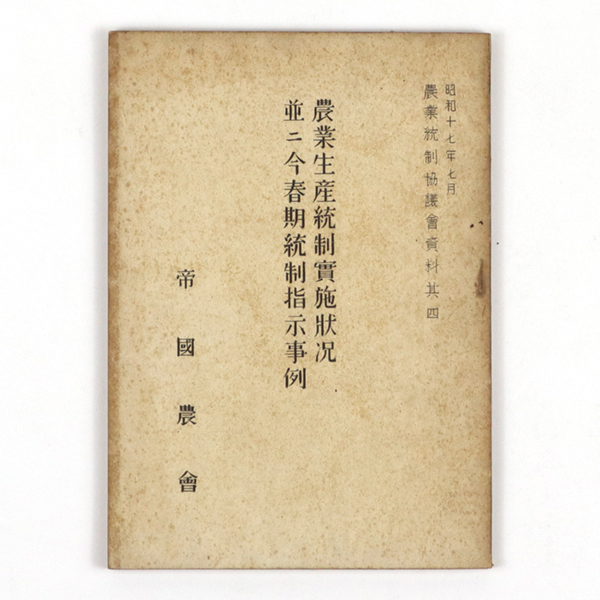 昭和十七年七月
農業統制協議會資料其四
農業生産統制實施狀况
並ニ今春期統制指示事例
帝國農會